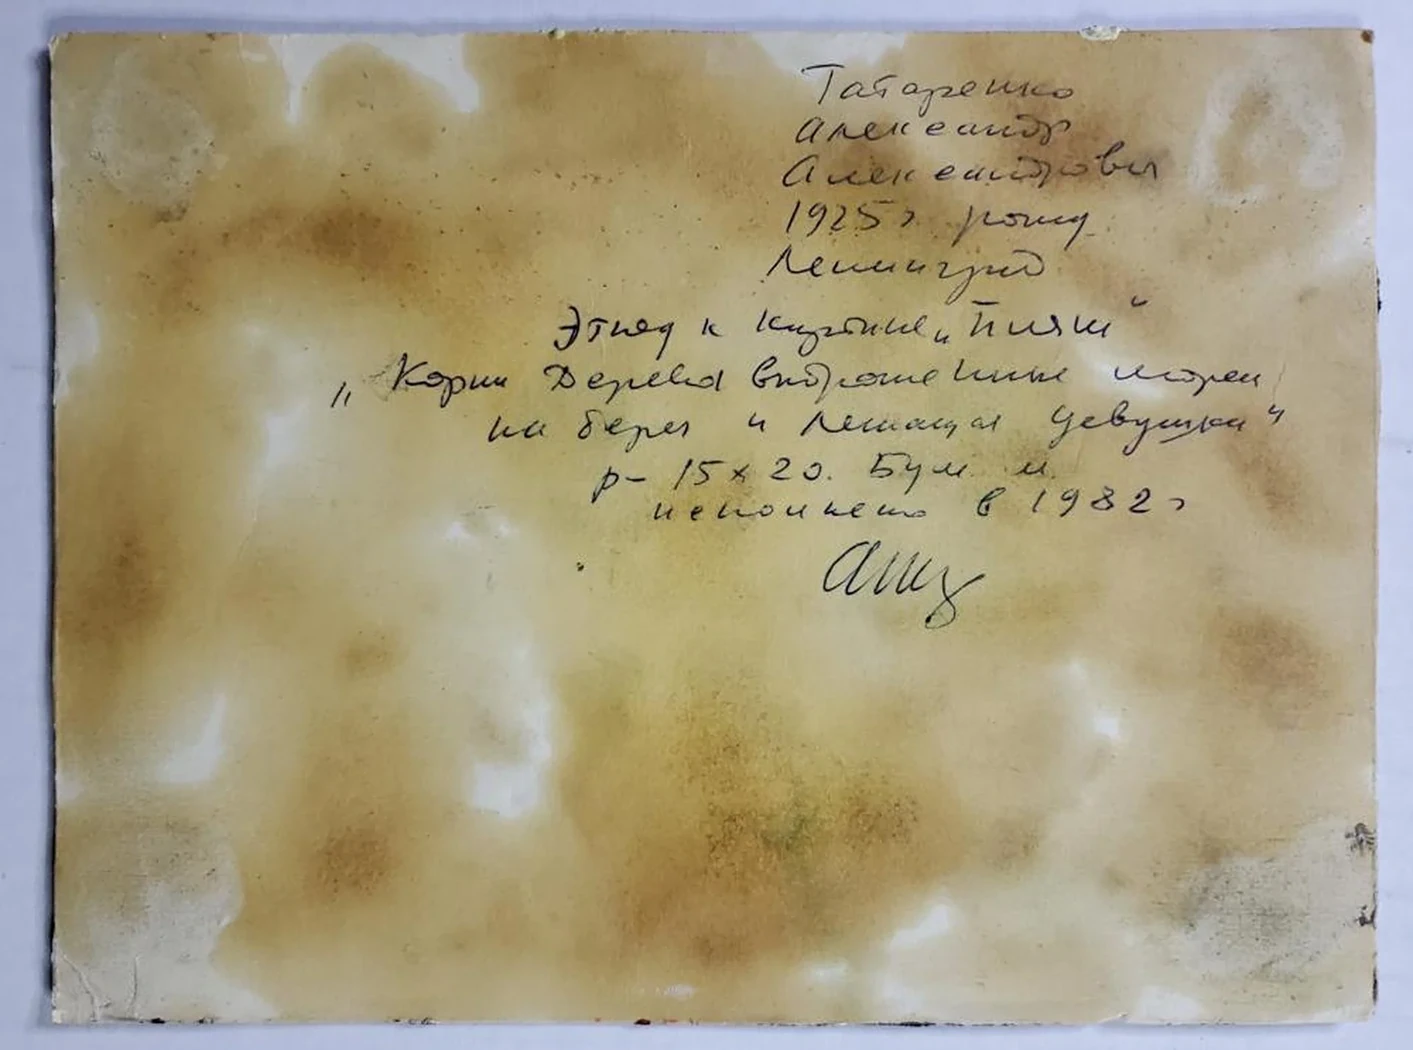 Татаренко
Александр
Александрович
1925 г. рожд
Ленинград
Этюд к картине „Пляж"
„Корни Дерева выброшенные морем
на берег и Лежащая девушка"
р- 15х20. Бум. м.
исполнено в 1982 г